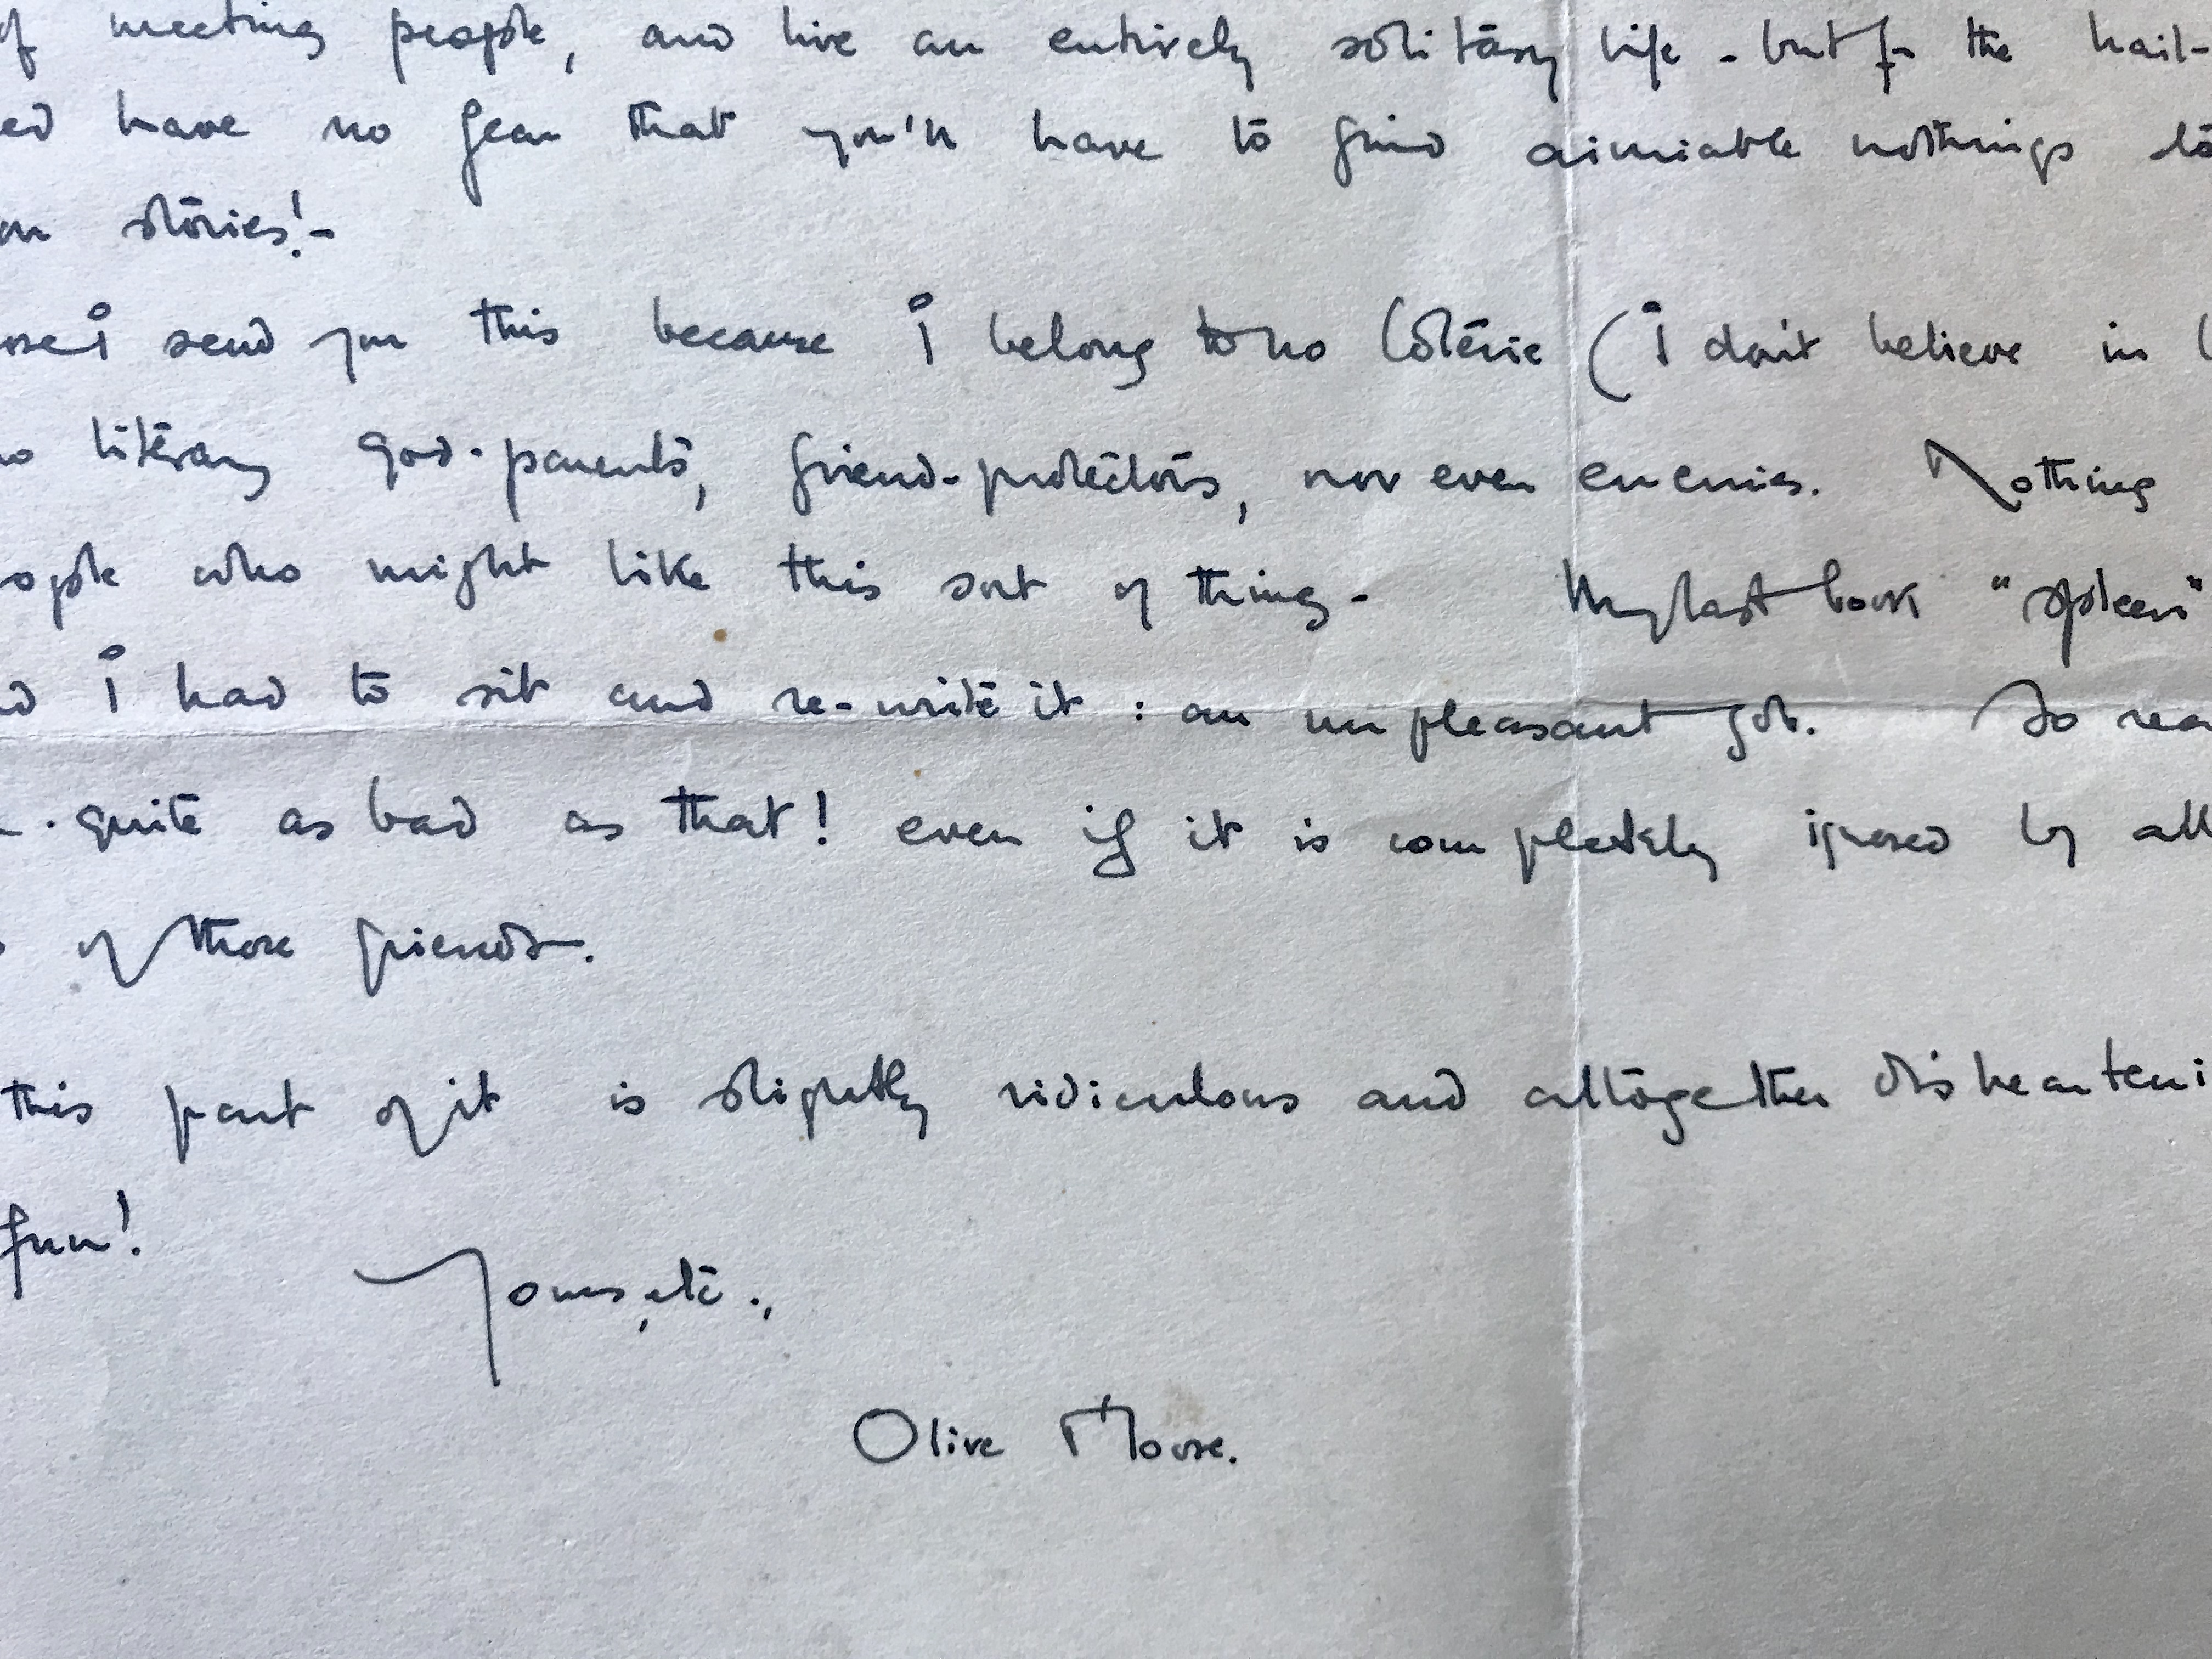 of meeting people, and live an entirely solitary life - but for the hail-
ed have no fear that you'll have to find aimiable nothings to
on stories!-
ose I send you this because I belong to no Côterie (I don't believe in
no literary god-parents, friend-protectors, nor even enemies. Nothing
eople who might like this sort of thing- My last book "Spleen"
nd I had to sit and re-write it : an unpleasant job. So rea
quite as bad as that! even if it is completely ignored by all
of those friends.
this part of it is slightly ridiculous and altogether dishearteni
fun!
Yours, etc.,
Olive Moore.